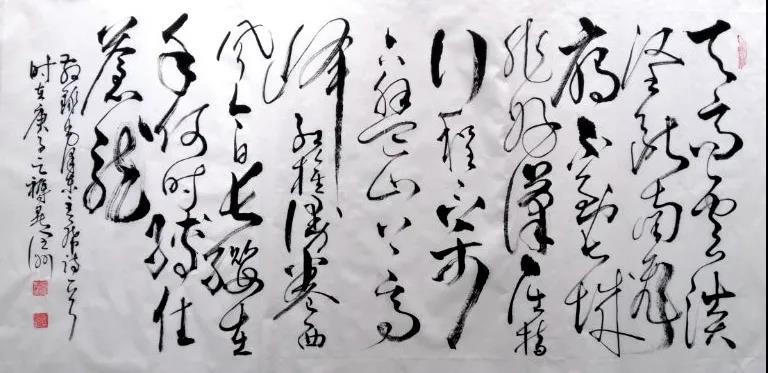 天高雲淡
望断南飛
雁不到长城
非好漢屈指
行程二万
六盤山上高
峰红旗漫卷西
风今日长缨在
手何时缚住
苍龙
毛泽东主席诗
时在庚子之